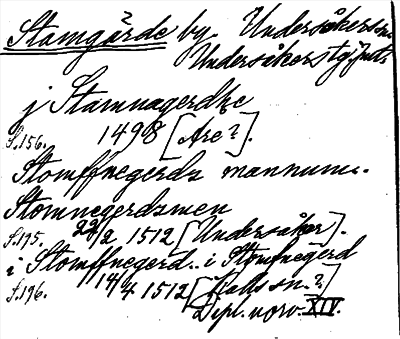 Stamgärde by, Undersåkers sn
Undersåkers tg, Jmtl
j Stamnagerdhe
S.156. 1498 [Åre?].
Stomffnegerdz mannum.
Stomnegerdzmen
S.195. 22/2 1512 [Undersåker].
i Stomffnegerd.. i Stomfnegerd
S.196. 14/4 1512 [Kalls sn.?]
Dipl. norv. XIV.